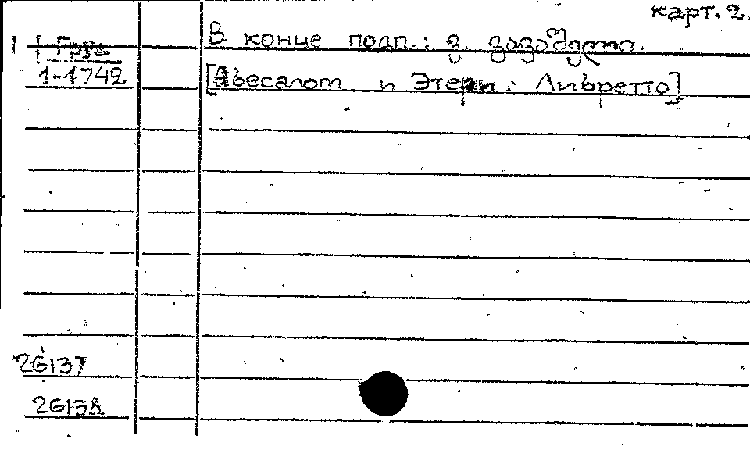 карт. 2.
В конце подп.:
1 Груз
1-1742
[Абесалом и Этери: Либретто]
26137
26138